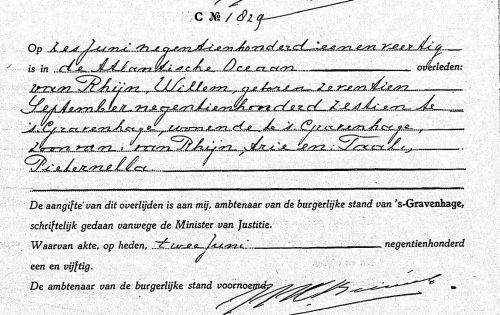 C № 1829
Op zes juni negentienhonderd een en veertig
is in de Atlantische Oceaan overleden:
van Rhijn, Willem, geboren zeventien
September negentienhonderd zestien te
's Gravenhage, wonende te 's Gravenhage,
zoon van: van Rhijn, Arie en: Taal,
Pieternella
De aangifte van dit overlijden is aan mij, ambtenaar van de burgerlijke stand van 's-Gravenhage,
schriftelijk gedaan vanwege de Minister van Justitie.
Waarvan akte, op heden, twee juni negentienhonderd
een en vijftig.
De ambtenaar van de burgerlijke stand voornoemd,